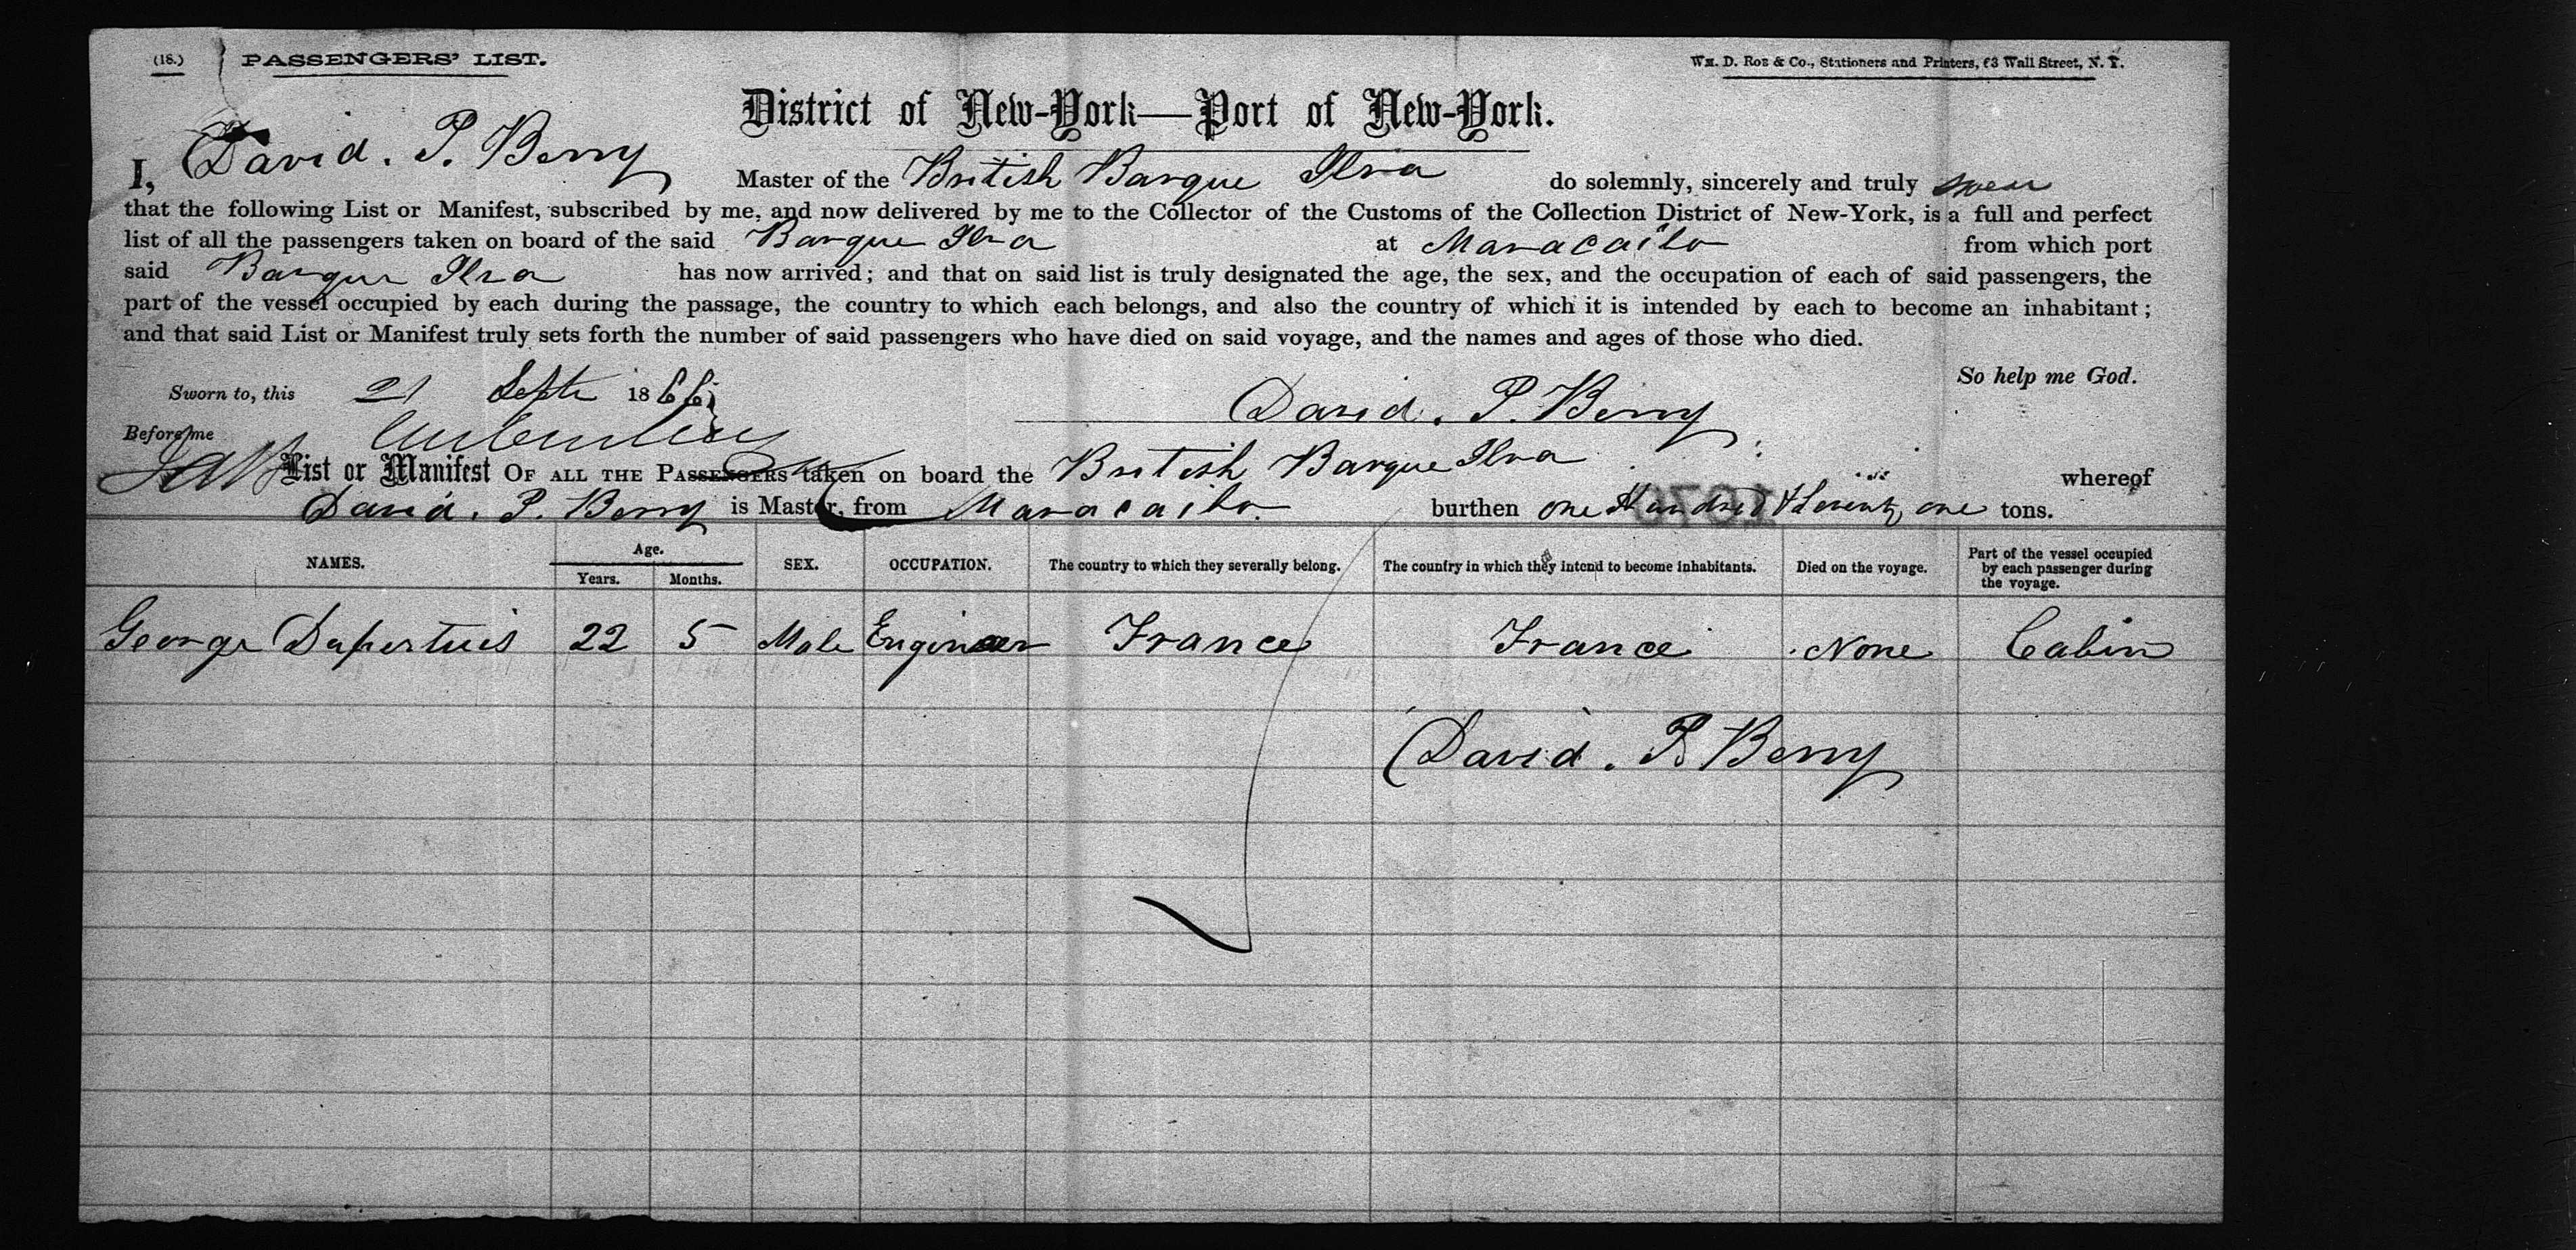 (18.) PASSENGERS' LIST.
Wm. D. Roe & Co., Stationers and Printers, 63 Wall Street, N. Y.
District of New-York—Port of New-York.
I, David. P. Berry Master of the British Barque Ilva do solemnly, sincerely and truly swear
that the following List or Manifest, subscribed by me, and now delivered by me to the Collector of the Customs of the Collection District of New-York, is a full and perfect
list of all the passengers taken on board of the said Barque Ilva at Maracaibo from which port
said Barque Ilva has now arrived; and that on said list is truly designated the age, the sex, and the occupation of each of said passengers, the
part of the vessel occupied by each during the passage, the country to which each belongs, and also the country of which it is intended by each to become an inhabitant;
and that said List or Manifest truly sets forth the number of said passengers who have died on said voyage, and the names and ages of those who died.
So help me God.
Sworn to, this 21 Septr 1866 David. P. Berry
Before me
List or Manifest OF ALL THE PASSENGERS taken on board the British Barque Ilva whereof
David. P. Berry is Master, from Maracaibo burthen one Hundred & Seventy one tons.
NAMES. Age. Years. Months. SEX. OCCUPATION. The country to which they severally belong. The country in which they intend to become inhabitants. Died on the voyage. Part of the vessel occupied by each passenger during the voyage.
George Dupertuis 22 5 Male Engineer France France None Cabin
David. P. Berry